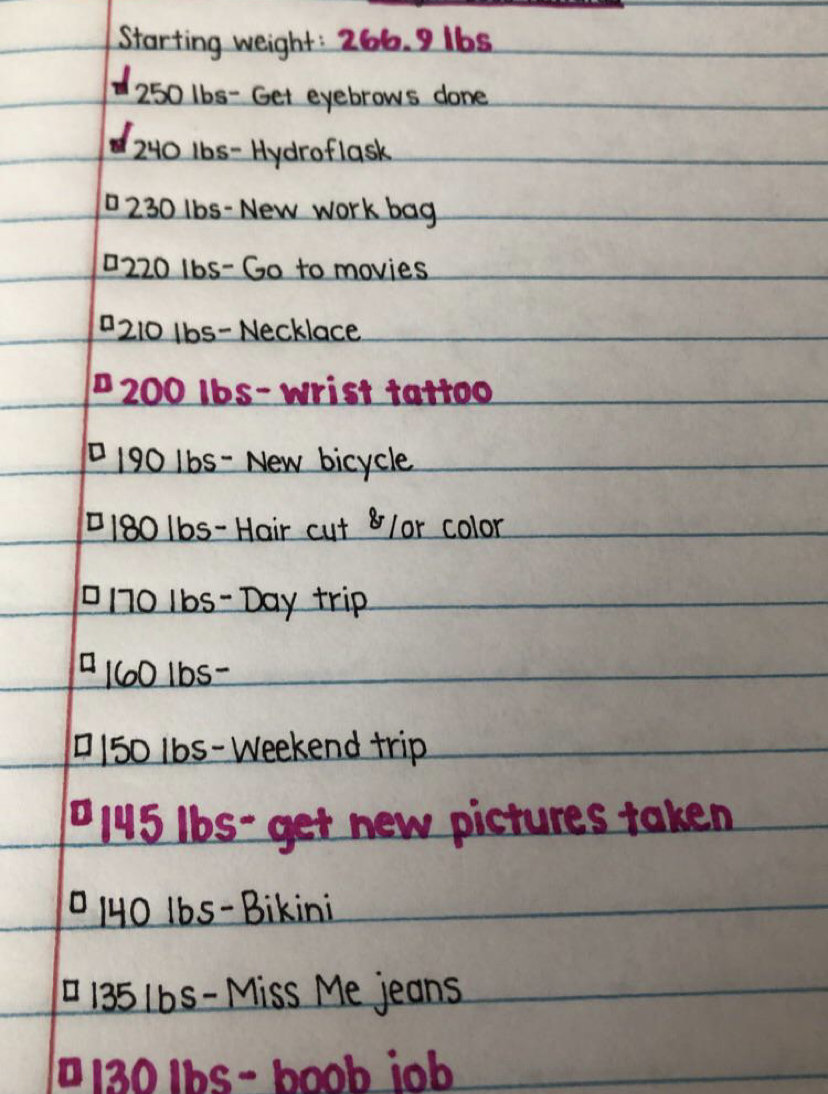 Starting weight: 266.9 lbs
250 lbs- Get eyebrows done
240 lbs- Hydroflask
230 lbs- New work bag
220 lbs- Go to movies
210 lbs- Necklace
200 lbs- wrist tattoo
190 lbs- New bicycle
180 lbs- Hair cut &/or color
170 lbs- Day trip
160 lbs-
150 lbs- Weekend trip
145 lbs- get new pictures taken
140 lbs- Bikini
135 lbs- Miss Me jeans
130 lbs- boob job